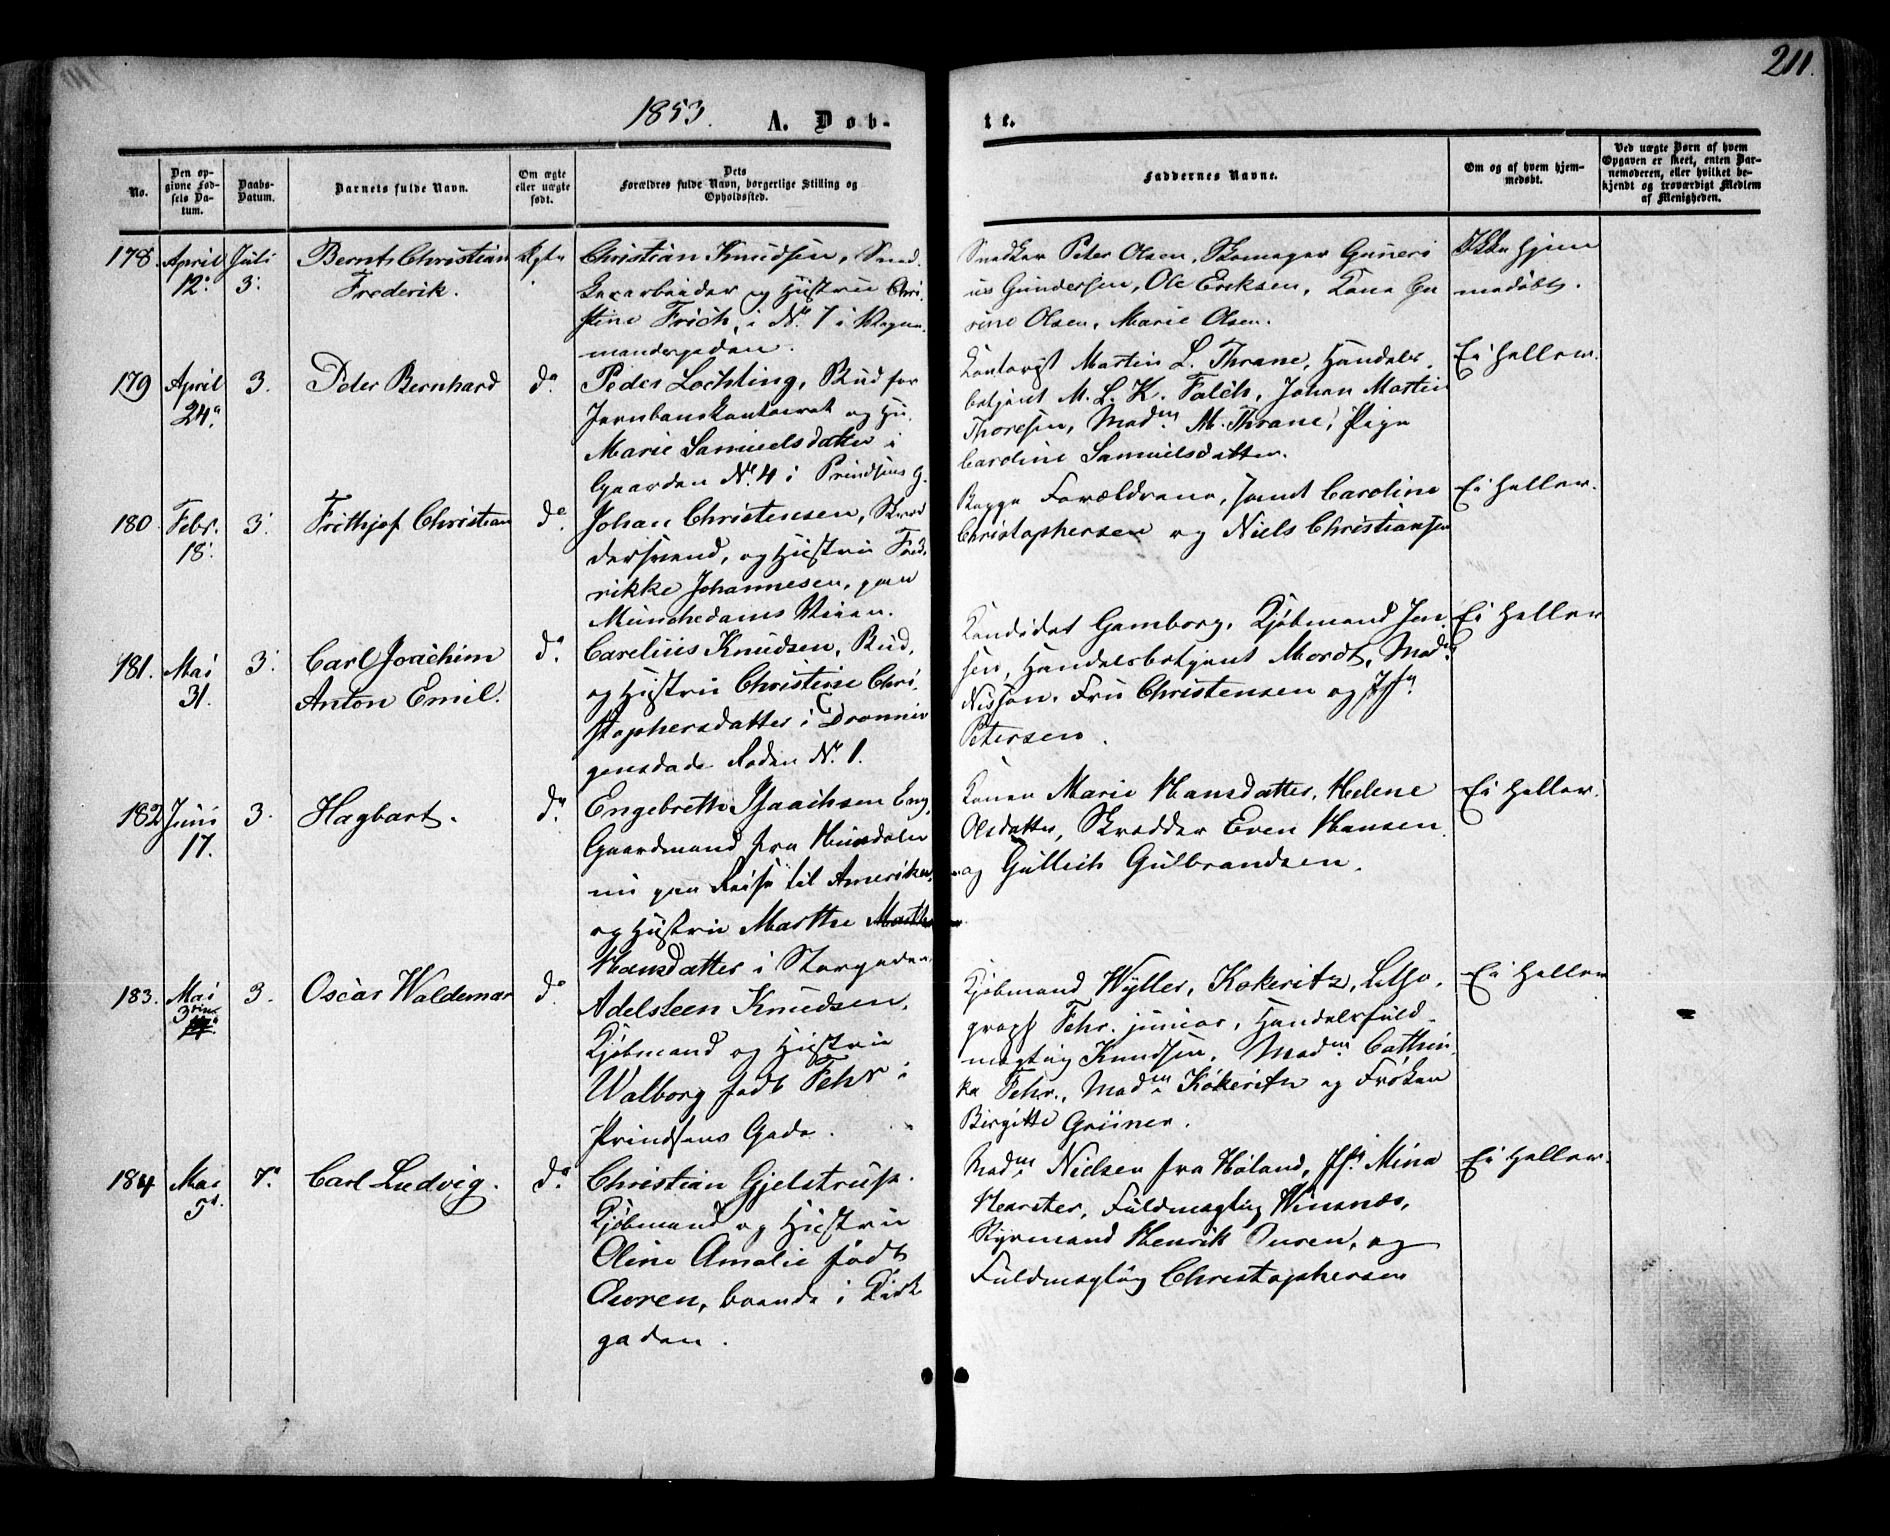 211.
1853. A. Døb-
te.
No.
Den op-
givne Fød-
sels Da-
tum.
Daabs-
Datum.
Barnets fulde Navn.
Om ægte
eller uægte
født.
Dets
Forældres fulde Navn, borgerlige Stilling og
Opholdssted.
Faddernes Navne.
Om og af hvem hjem-
medøbt.
Ved uægte Børn af hvem
Opgaven er skeet, enten Bar-
nemoderen, eller hvilket be-
kjendt og troværdigt Medlem
af Menigheden.
178. April 12. Juli 3.
Bernt Christian
Frederik.
Ægte
Christian Knudsen, Sned-
kerarbeider og Hustru Chri-
stine Frich, i No. 7 i Vogn-
mandsgaden.
Snedker Peter Olsen, Skomager Guneri
us Gundersen, Ole Eriksen, Kone Gu
rine Olsen, Marie Olsen.
Ikke hjem
medøbt.
179 April 24. 3.
Peter Bernhard
do.
Peder Lochting, Bud for
Jernbanekontoiret og Hu.
Marie Samuelsdatter i
Gaarden No. 4 i Prindsens G.
Kontorist Martin L. Thrane, Handels-
betjent M. L. K. Falch, Johan Martin
Thoresen, Madm. M. Thrane, Pige
Caroline Samuelsdatter.
Ei heller.
180. Febr. 18. 3.
Frithjof Christian
do.
Johan Christensen, Skræd
dersvend, og Hustru Fred-
rikke Johannesen, paa
Munchedams Veien.
Begge Forældrene, samt Caroline
Christophersen og Niels Christiansen
Ei heller.
181. Mai 31. 3.
Carl Joachim
Anton Emil.
do.
Carelius Knudsen, Bud,
og Hustru Christine Chri-
stophersdatter i Dronnin
gensgade Roden No. 1.
Kandidat Gamborg, Kjøbmand Jen-
sen, Handelsbetjent Mordt, Madm.
Nissen, Fru Christensen og Jfr.
Petersen.
Ei heller
182 Juni 17. 3.
Hagbart.
do.
Engebreth Isaachsen Eng,
Gaardmand fra Hurdalen
nu paa Reise til Amerika,
og Hustru Marthe
Hansdatter i Storgaden.
Konen Marie Hansdatter, Helene
Olsdatter, Skrædder Even Hansen
og Gullich Gulbrandsen.
Ei heller.
183. Mai 3. 3.
Oscar Waldemar
do.
Adelsteen Knudsen,
Kjøbmand og Hustru
Walborg født Fehr i
Prindsens Gade.
Kjøbmand Wyller, Kokeritz, Litho-
graph Fehr. junior, Handelsfuld-
mægtig Knudsen, Madm. Cathin-
ka Fehr, Madm. Kokeritz og Frøken
Birgitte Grüner.
Ei heller
184 Mai 5. 7.
Carl Ludvig.
do.
Christian Gjelstrup.
Kjøbmand og Hustru
Oline Amalie født
Ouren, boende i Kirk
gaden.
Madm. Nielsen fra Høland, Jfr. Mina
Harster, Fuldmægtig Winsnæs,
Styrmand Henrik Ouren, og
Fuldmægtig Christophersen
Ei heller.